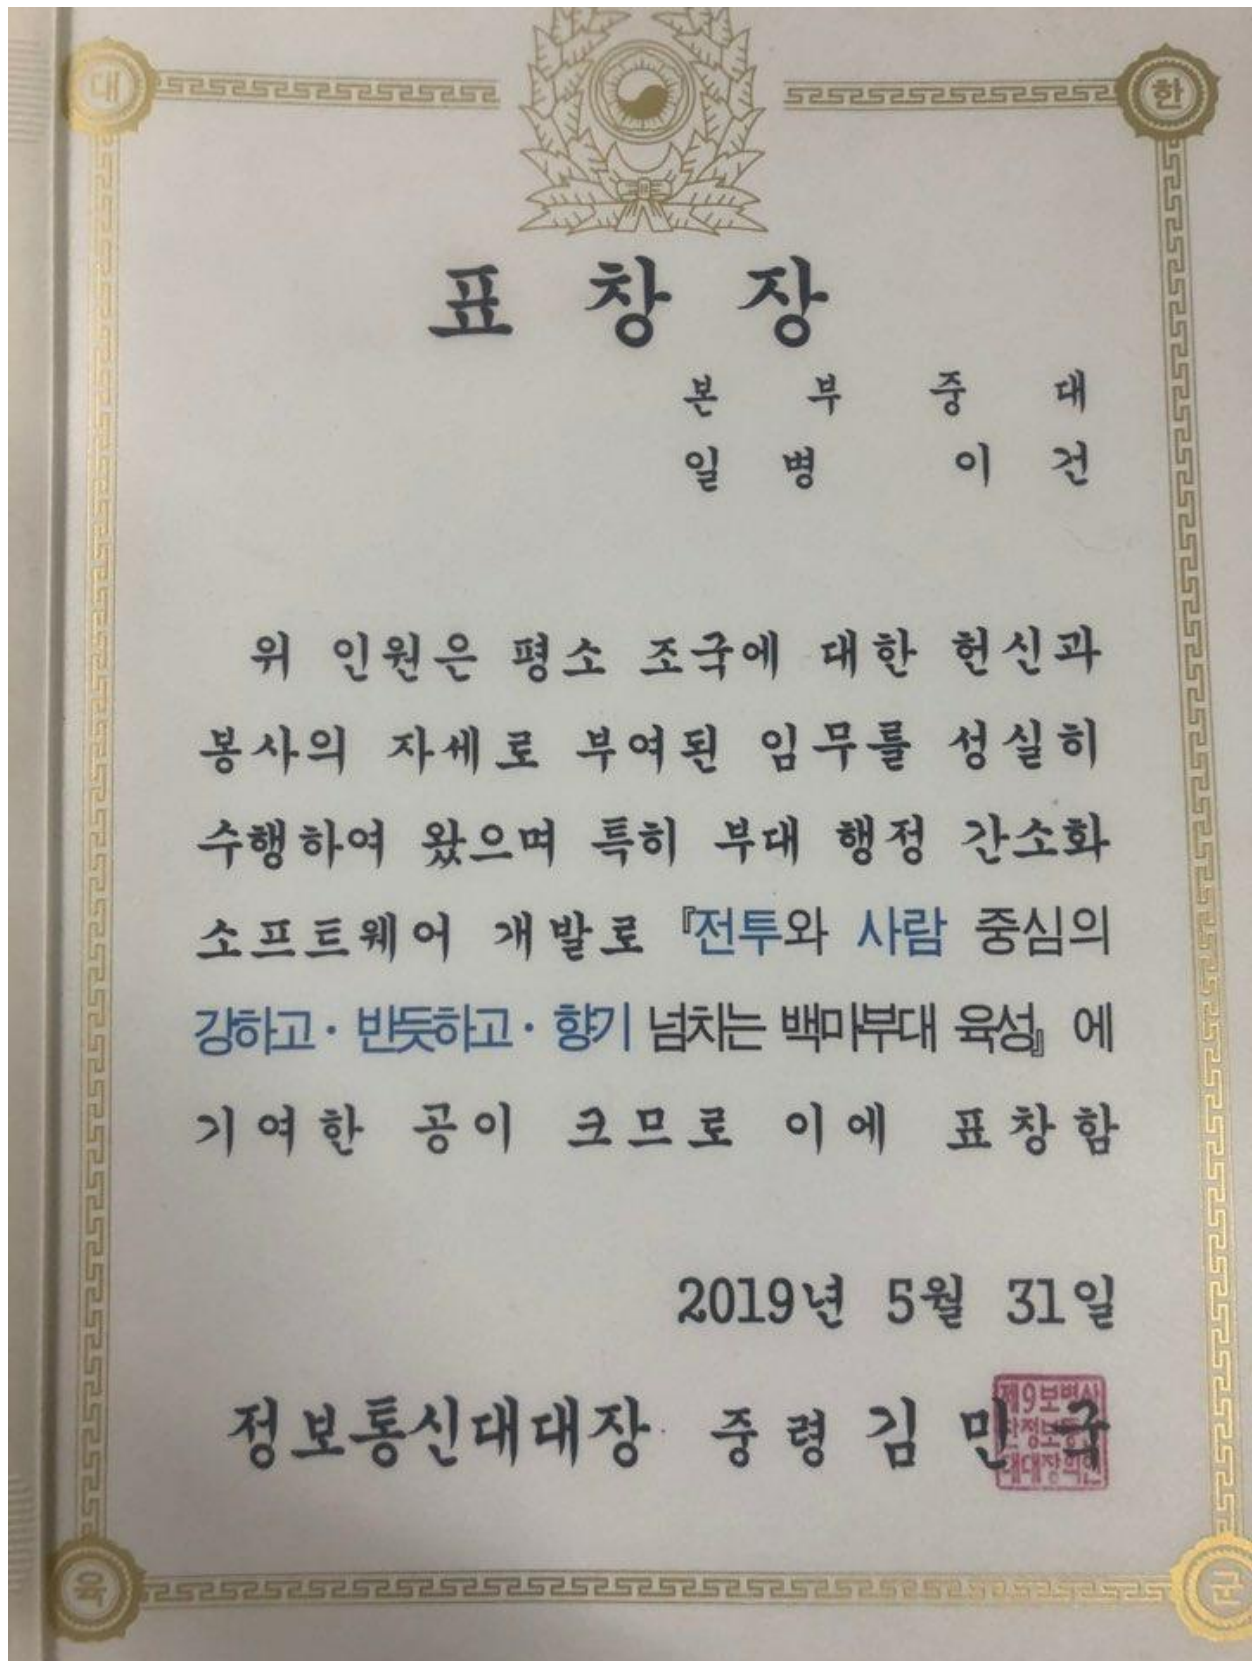 대 한
표 창 장
본 부 중 대
일 병 이 건
위 인원은 평소 조국에 대한 헌신과
봉사의 자세로 부여된 임무를 성실히
수행하여 왔으며 특히 부대 행정 간소화
소프트웨어 개발로 『전투와 사람 중심의
강하고· 반듯하고· 향기 넘치는 백마부대 육성』에
기여한 공이 크므로 이에 표창함
2019년 5월 31일
정보통신대대장 중령 김 민 국
제9보병사
단정보통신
대대장의인
육 군